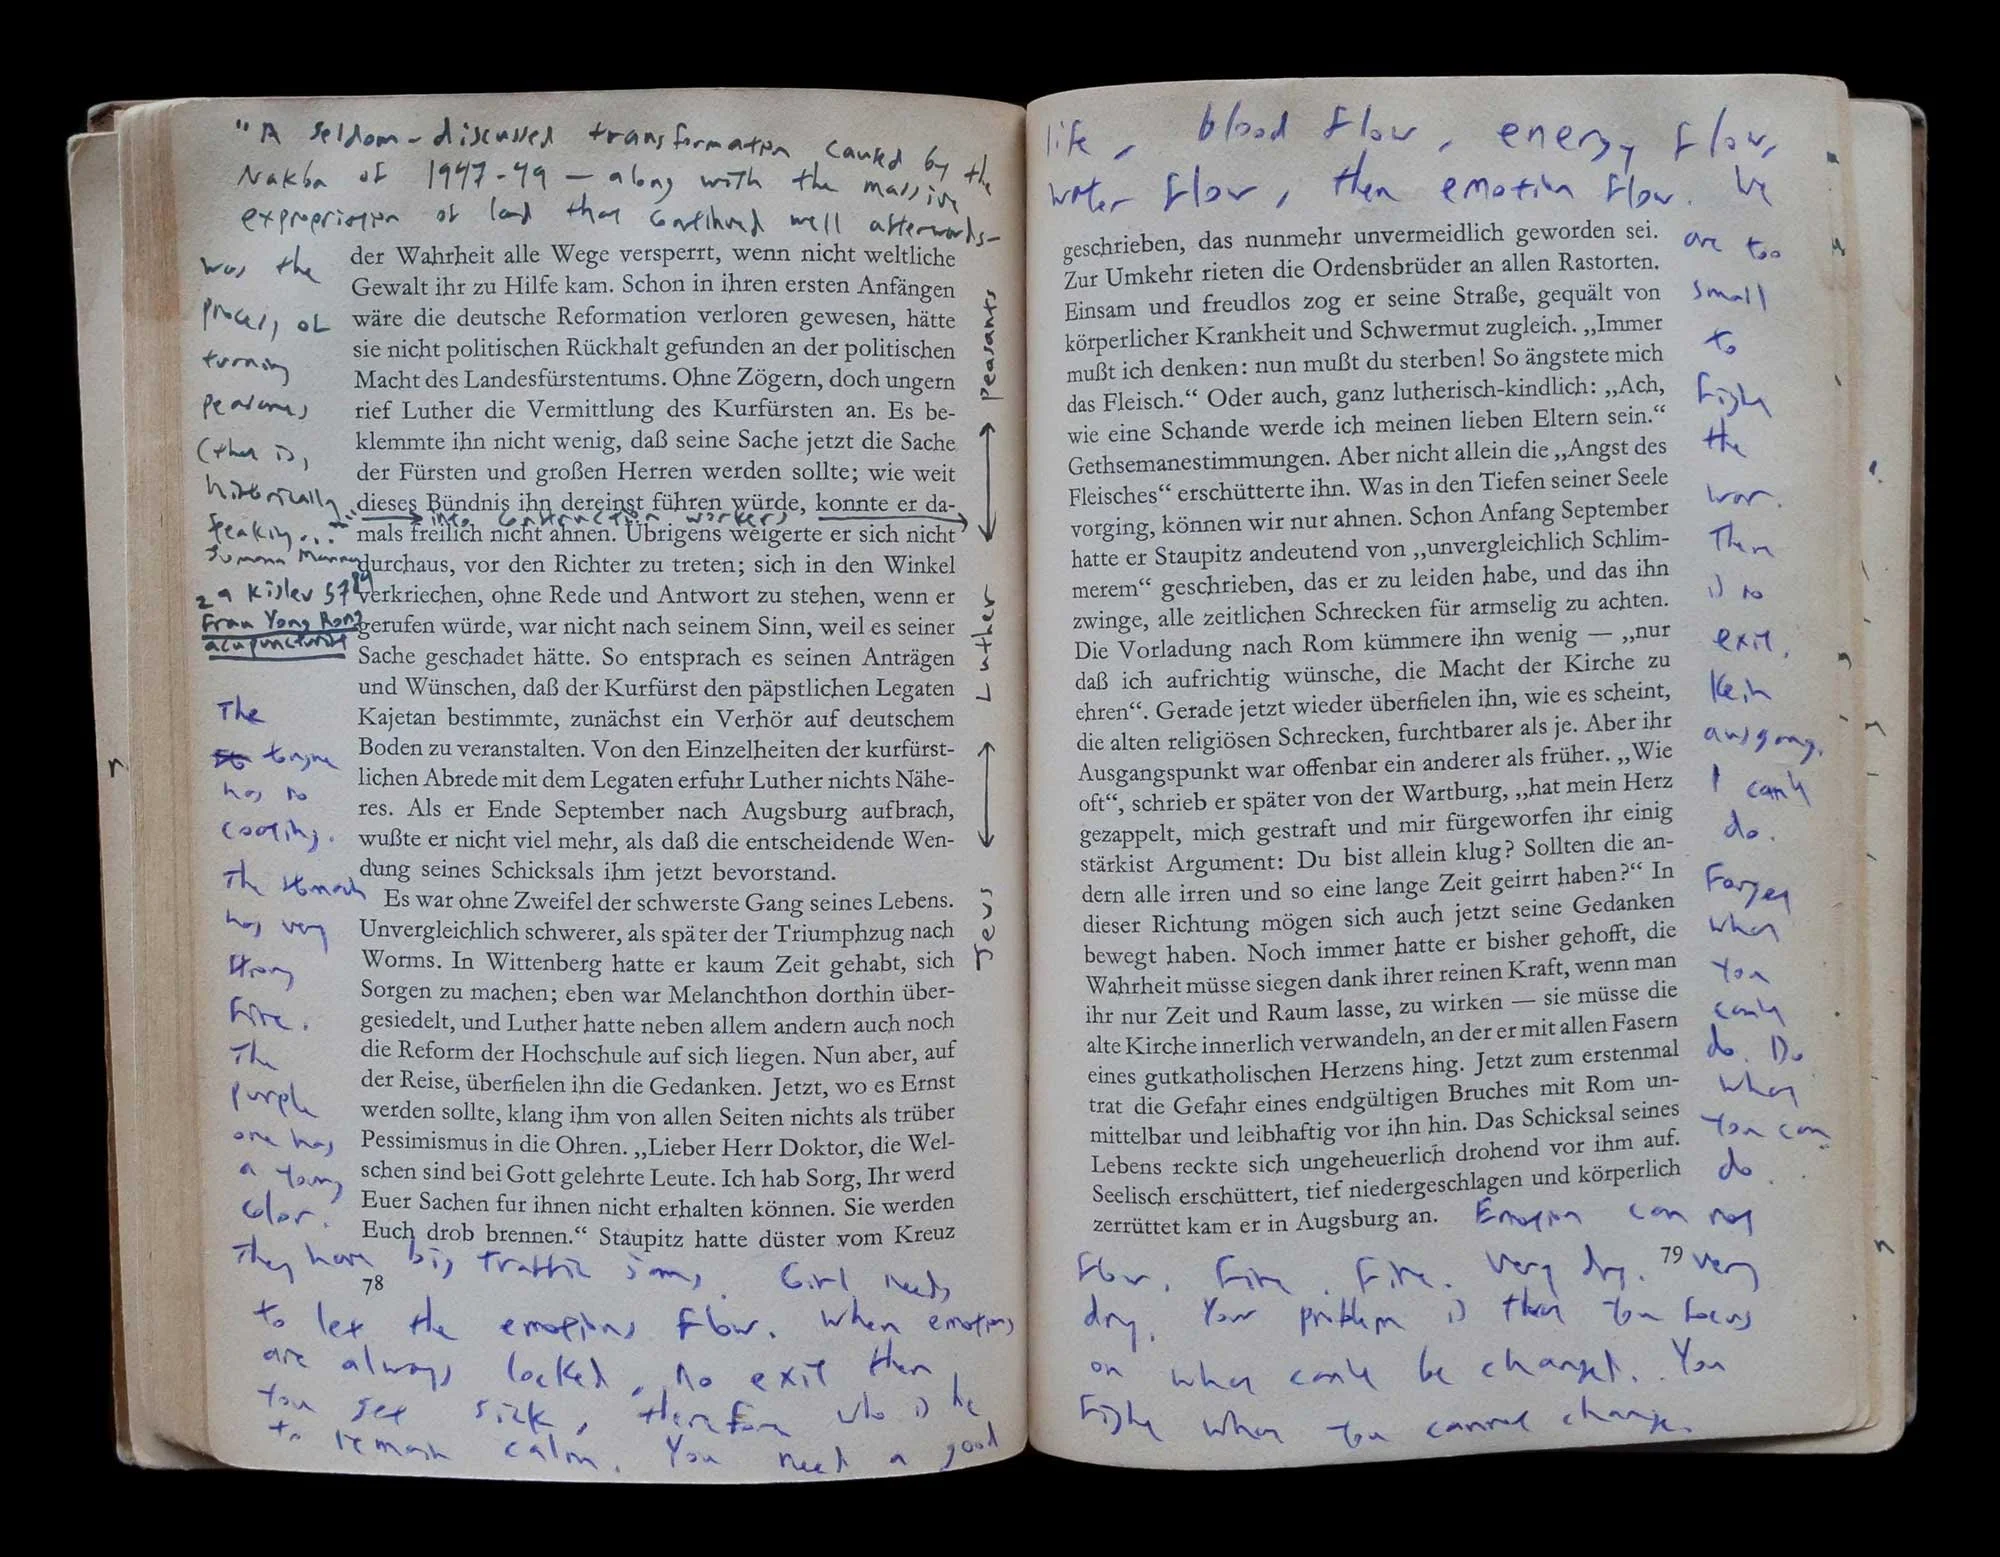 "A seldom-discussed transformation caused by the
Nakba of 1947-49 — along with the massive
expropriation of land that continued well afterwards—
was the
process of
turning
peasants
(that is,
historically
speaking...
into construction workers"
29 Kislev 5784
Frau Yong Rong
acupuncturist
peasants
Luther
Jews
der Wahrheit alle Wege versperrt, wenn nicht weltliche
Gewalt ihr zu Hilfe kam. Schon in ihren ersten Anfängen
wäre die deutsche Reformation verloren gewesen, hätte
sie nicht politischen Rückhalt gefunden an der politischen
Macht des Landesfürstentums. Ohne Zögern, doch ungern
rief Luther die Vermittlung des Kurfürsten an. Es be-
klemmte ihn nicht wenig, daß seine Sache jetzt die Sache
der Fürsten und großen Herren werden sollte; wie weit
dieses Bündnis ihn dereinst führen würde, konnte er da-
mals freilich nicht ahnen. Übrigens weigerte er sich nicht
durchaus, vor den Richter zu treten; sich in den Winkel
verkriechen, ohne Rede und Antwort zu stehen, wenn er
gerufen würde, war nicht nach seinem Sinn, weil es seiner
Sache geschadet hätte. So entsprach es seinen Anträgen
und Wünschen, daß der Kurfürst den päpstlichen Legaten
Kajetan bestimmte, zunächst ein Verhör auf deutschem
Boden zu veranstalten. Von den Einzelheiten der kurfürst-
lichen Abrede mit dem Legaten erfuhr Luther nichts Nähe-
res. Als er Ende September nach Augsburg aufbrach,
wußte er nicht viel mehr, als daß die entscheidende Wen-
dung seines Schicksals ihm jetzt bevorstand.
Es war ohne Zweifel der schwerste Gang seines Lebens.
Unvergleichlich schwerer, als später der Triumphzug nach
Worms. In Wittenberg hatte er kaum Zeit gehabt, sich
Sorgen zu machen; eben war Melanchthon dorthin über-
gesiedelt, und Luther hatte neben allem andern auch noch
die Reform der Hochschule auf sich liegen. Nun aber, auf
der Reise, überfielen ihn die Gedanken. Jetzt, wo es Ernst
werden sollte, klang ihm von allen Seiten nichts als trüber
Pessimismus in die Ohren. „Lieber Herr Doktor, die Wel-
schen sind bei Gott gelehrte Leute. Ich hab Sorg, Ihr werd
Euer Sachen fur ihnen nicht erhalten können. Sie werden
Euch drob brennen.“ Staupitz hatte düster vom Kreuz
78
The
tongue
has no
coating.
The stomach
has very
strong
fire.
The
purple
one has
a young
color.
They have big traffic jams. Girl needs
to let the emotions flow. When emotions
are always locked, no exit then
you get sick, therefore who is he
to remain calm. You need a good
life, blood flow, energy flow,
water flow, then emotion flow. We
are too
small
to
fight
the
war.
There
is no
exit.
Kein
ausgang.
I can't
do.
Forget
what
you
can't
do. Do
what
you can
do.
geschrieben, das nunmehr unvermeidlich geworden sei.
Zur Umkehr rieten die Ordensbrüder an allen Rastorten.
Einsam und freudlos zog er seine Straße, gequält von
körperlicher Krankheit und Schwermut zugleich. „Immer
mußt ich denken: nun mußt du sterben! So ängstete mich
das Fleisch.“ Oder auch, ganz lutherisch-kindlich: „Ach,
wie eine Schande werde ich meinen lieben Eltern sein.“
Gethsemanestimmungen. Aber nicht allein die „Angst des
Fleisches“ erschütterte ihn. Was in den Tiefen seiner Seele
vorging, können wir nur ahnen. Schon Anfang September
hatte er Staupitz andeutend von „unvergleichlich Schlim-
merem“ geschrieben, das er zu leiden habe, und das ihn
zwinge, alle zeitlichen Schrecken für armselig zu achten.
Die Vorladung nach Rom kümmere ihn wenig — „nur
daß ich aufrichtig wünsche, die Macht der Kirche zu
ehren“. Gerade jetzt wieder überfielen ihn, wie es scheint,
die alten religiösen Schrecken, furchtbarer als je. Aber ihr
Ausgangspunkt war offenbar ein anderer als früher. „Wie
oft“, schrieb er später von der Wartburg, „hat mein Herz
gezappelt, mich gestraft und mir fürgeworfen ihr einig
stärkist Argument: Du bist allein klug? Sollten die an-
dern alle irren und so eine lange Zeit geirrt haben?“ In
dieser Richtung mögen sich auch jetzt seine Gedanken
bewegt haben. Noch immer hatte er bisher gehofft, die
Wahrheit müsse siegen dank ihrer reinen Kraft, wenn man
ihr nur Zeit und Raum lasse, zu wirken — sie müsse die
alte Kirche innerlich verwandeln, an der er mit allen Fasern
eines gutkatholischen Herzens hing. Jetzt zum erstenmal
trat die Gefahr eines endgültigen Bruches mit Rom un-
mittelbar und leibhaftig vor ihn hin. Das Schicksal seines
Lebens reckte sich ungeheuerlich drohend vor ihm auf.
Seelisch erschüttert, tief niedergeschlagen und körperlich
zerrüttet kam er in Augsburg an.
Emotion can not
flow. Fire. Fire. Very dry. Very
79
dry. Your problem is that you focus
on what can't be changed. You
fight what you cannot change.